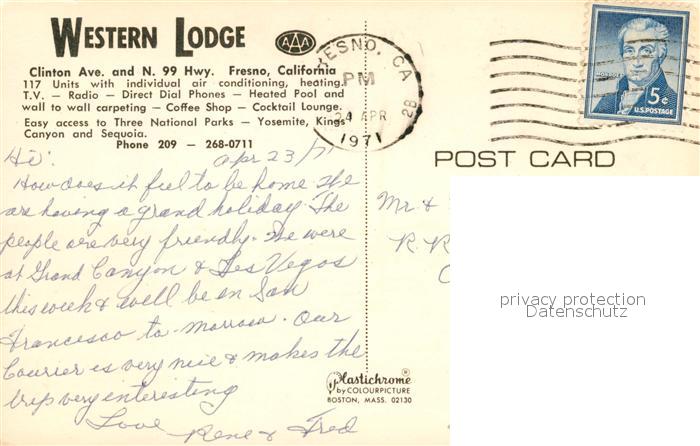 WESTERN LODGE
AAA
Clinton Ave. and N. 99 Hwy. Fresno, California
117 Units with individual air conditioning, heating,
T.V. — Radio — Direct Dial Phones — Heated Pool and
wall to wall carpeting — Coffee Shop — Cocktail Lounge.
Easy access to Three National Parks — Yosemite, Kings
Canyon and Sequoia.
Phone 209 — 268-0711
Hi: Apr 23/71
How does it feel to be home. We
are having a grand holiday. The
people are very friendly. We were
at Grand Canyon & Les Vegas
this week & will be in San
Francisco to-morrow. Our
Courier is very nice & makes the
trip very interesting
Love
Rene & Fred
RESNO, CA
PM
24 APR
1971
2B
5¢
U.S. POSTAGE
POST CARD
Mr &
R.R
privacy protection
Datenschutz
Plastichrome®
by COLOURPICTURE
BOSTON, MASS. 02130